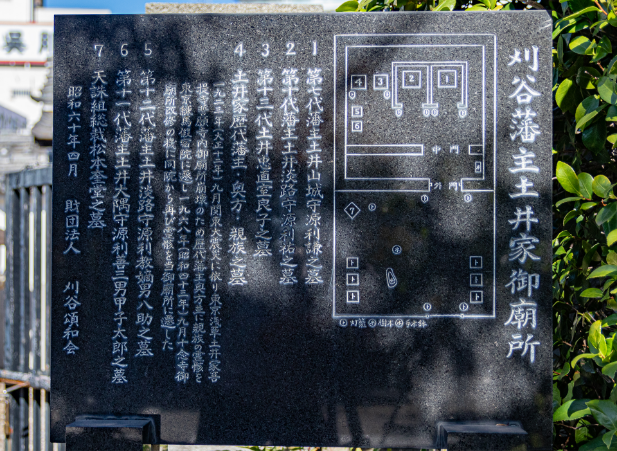 刈谷藩主土井家御廟所
中門
外門
1
2
3
4
5
6
7
1 第七代藩主土井山城守源利謙之墓
2 第十代藩主土井淡路守源利祐之墓
3 第十三代土井忠直室良子之墓
4 土井家歴代藩主・奥方・親族之墓
一九二三年(大正十二年)九月関東大震災に依り東京浅草土井家菩
提寺誓願寺内御廟所崩壊のため歴代藩主奥方並に親族の霊骸を
東京 一九六八年(昭和四十三年)九月十念寺御
廟所 同院から再び霊骸を当御廟所に遷した
5 第十二代藩主土井淡路守源利教嫡男八助之墓
6 第十一代藩主土井大隅守源利善三男甲子太郎之墓
7 天誅組総裁松本奎堂之墓
昭和六十年四月 財団法人 刈谷頌和会